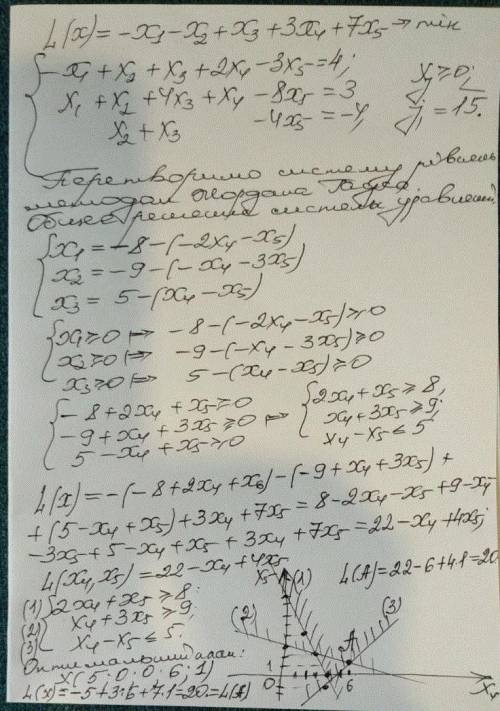 L(x) = -x₁ - x₂ + x₃ + 3x₄ + 7x₅ → min
-x₁ + x₂ + x₃ + 2x₄ - 3x₅ = 4;
x₁ + x₂ + 4x₃ + x₄ - 8x₅ = 3
x₂ + x₃ - 4x₅ = -4,
xⱼ ≥ 0;
j = 1,5.
Перетворимо систему рівнянь
методом Жордана Гаусса
Общее решение системы уравнений
x₁ = -8 - (-2x₄ - x₅)
x₂ = -9 - (-x₄ - 3x₅)
x₃ = 5 - (x₄ - x₅)
x₁ ≥ 0 ⟼ -8 - (-2x₄ - x₅) ≥ 0
x₂ ≥ 0 ⟼ -9 - (-x₄ - 3x₅) ≥ 0
x₃ ≥ 0 ⟼ 5 - (x₄ - x₅) ≥ 0
-8 + 2x₄ + x₅ ≥ 0
-9 + x₄ + 3x₅ ≥ 0 ⟼
5 - x₄ + x₅ ≥ 0
2x₄ + x₅ ≥ 8,
x₄ + 3x₅ ≥ 9,
x₄ - x₅ ≤ 5
L(x) = -(-8 + 2x₄ + x₆) - (-9 + x₄ + 3x₅) +
+ (5 - x₄ + x₅) + 3x₄ + 7x₅ = 8 - 2x₄ - x₅ + 9 - x₄
- 3x₅ + 5 - x₄ + x₅ + 3x₄ + 7x₅ = 22 - x₄ + 4x₅;
L(x₄, x₅) = 22 - x₄ + 4x₅
L(A) = 22 - 6 + 4·1 = 20.
(1) 2x₄ + x₅ ≥ 8;
(2) x₄ + 3x₅ ≥ 9;
(3) x₄ - x₅ ≤ 5.
Оптимальный план:
X(5; 0; 0; 6; 1)
L(x) = -5 + 3·6 + 7·1 = 20 = L(A)
x₅
(1)
(2)
(3)
A
1
0
1
6
x₄